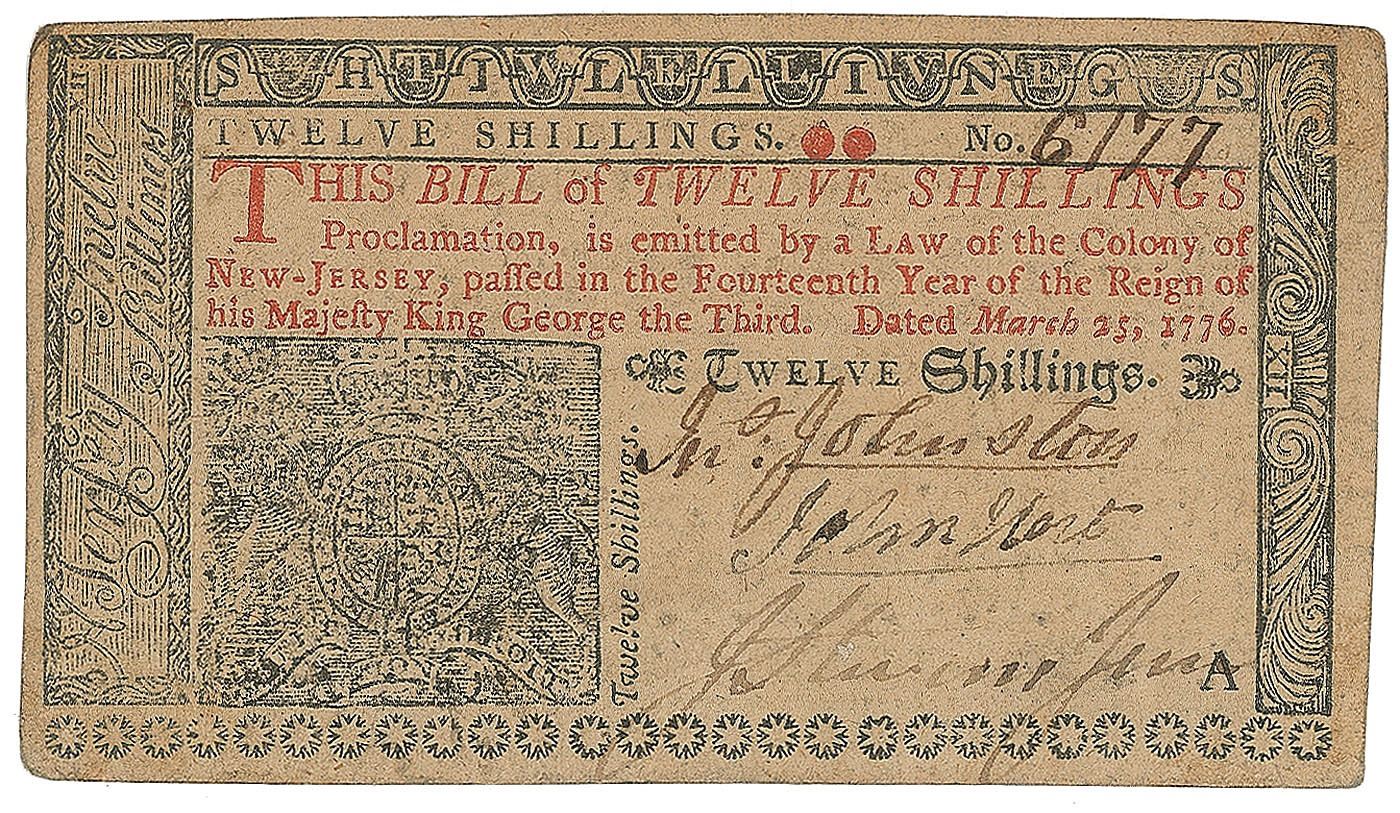 SHTIWLELLIVNEGS
TWELVE SHILLINGS. No. 6177
THIS BILL of TWELVE SHILLINGS
Proclamation, is emitted by a LAW of the Colony of
NEW-JERSEY, paſſed in the Fourteenth Year of the Reign of
his Majeſty King George the Third. Dated March 25, 1776.
TWELVE Shillings.
Jnº. Johnston
John Hart
J Stevens Jun
A
Twelve Shillings.
N Jerſey Twelve Shillings
XII
XII